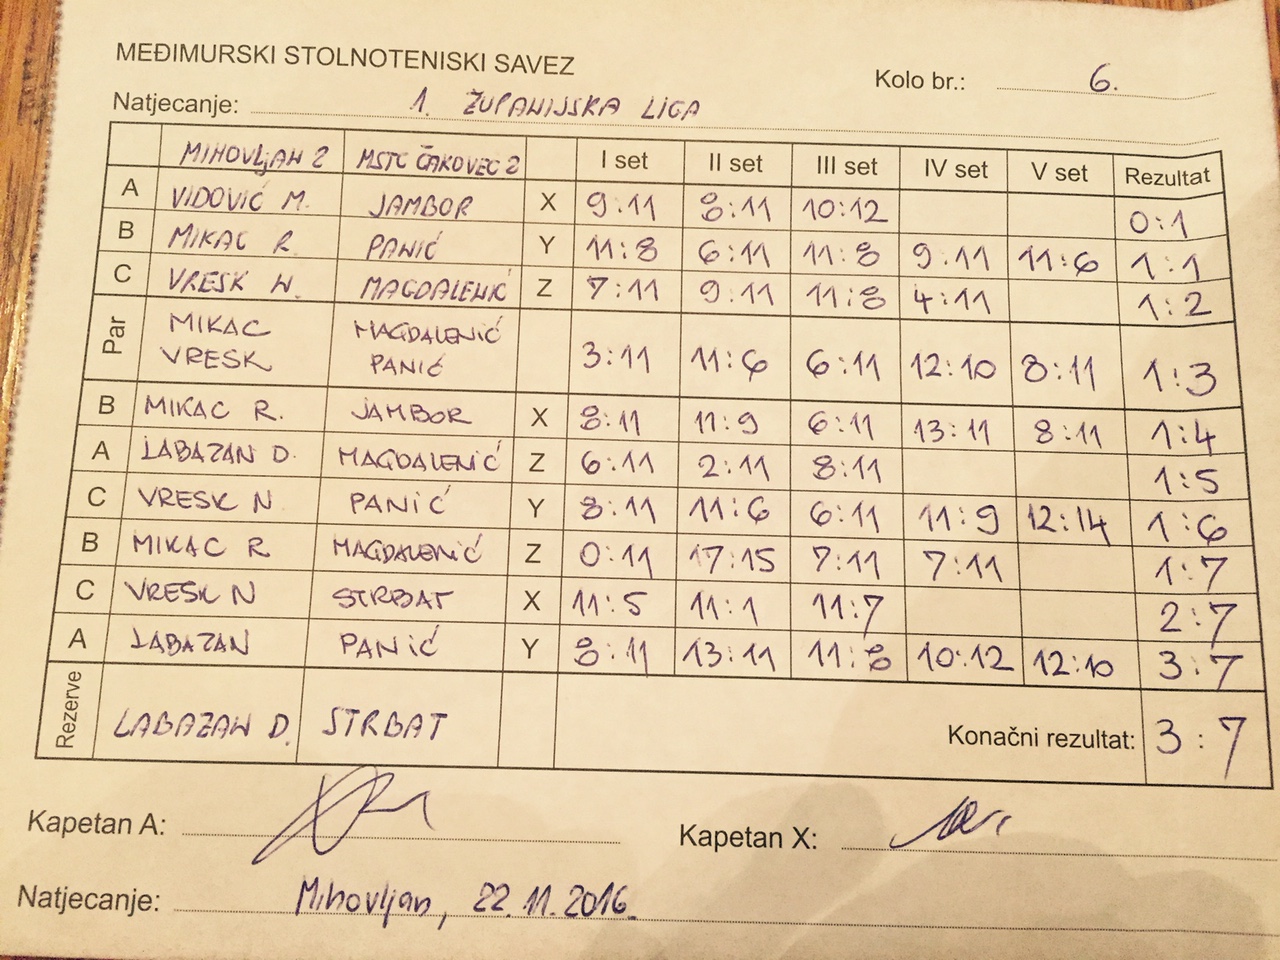 MEĐIMURSKI STOLNOTENISKI SAVEZ
Kolo br.: 6.
Natjecanje: 1. ŽUPANIJSKA LIGA
MIHOVLjAN 2 MSTC ČAKOVEC 2 I set II set III set IV set V set Rezultat
A VIDOVIĆ M. JAMBOR X 9:11 8:11 10:12 0:1
B MIKAC R. PANIĆ Y 11:8 6:11 11:8 9:11 11:6 1:1
C VRESK N. MAGDALENIĆ Z 7:11 9:11 11:8 4:11 1:2
Par MIKAC VRESK MAGDALENIĆ PANIĆ 3:11 11:6 6:11 12:10 8:11 1:3
B MIKAC R. JAMBOR X 8:11 11:9 6:11 13:11 8:11 1:4
A LABAZAN D. MAGDALENIĆ Z 6:11 2:11 8:11 1:5
C VRESK N PANIĆ Y 8:11 11:6 6:11 11:9 12:14 1:6
B MIKAC R MAGDALENIĆ Z 0:11 17:15 7:11 7:11 1:7
C VRESK N STRBAT X 11:5 11:1 11:7 2:7
A LABAZAN PANIĆ Y 8:11 13:11 11:8 10:12 12:10 3:7
Rezerve LABAZAN D. STRBAT Konačni rezultat: 3:7
Kapetan A: Kapetan X:
Natjecanje: Mihovljan, 22.11.2016.